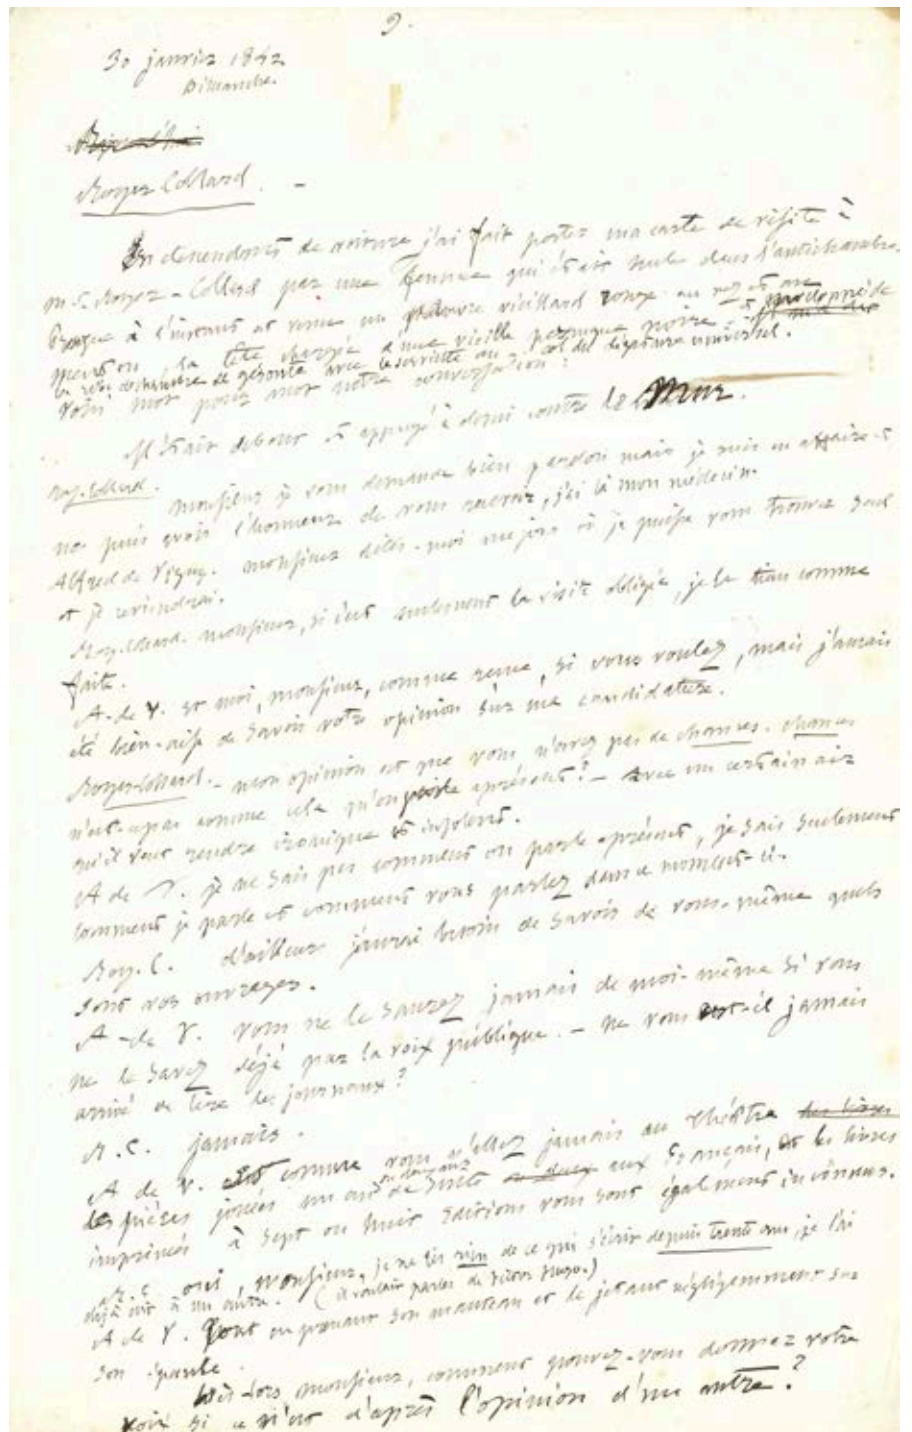 9.
30 janvier 1842
Dimanche.
Royer Collard. -
En descendant de voiture j'ai fait porter ma carte de visite à
M. Royer-Collard par une femme qui était seule dans l'antichambre.
à l'instant est venu un pauvre vieillard rouge au nez et au
menton la tête chargée d'une vieille perruque noire et enveloppé de
la robe de chambre de Géronte avec la serviette au col du légataire universel.
Voici mot pour mot notre conversation :
Il était debout et appuyé à demi contre le mur.
Roy. Collard. Monsieur je vous demande bien pardon mais je suis en affaire et
ne puis avoir l'honneur de vous recevoir, j'ai là mon médecin.
Alfred de Vigny. Monsieur dites-moi un jour où je puisse vous trouver seul
et je reviendrai.
Roy. Collard. Monsieur, si c'est seulement la visite obligée, je la tiens comme
faite.
A. de V. et moi, monsieur, comme reçue, si vous voulez, mais j'aurais
été bien-aise de savoir votre opinion sur ma candidature.
Royer-Collard. - mon opinion est que vous n'avez pas de chances. chances
n'est-ce pas comme cela qu'on parle à présent ? - avec un certain air
qu'il veut rendre ironique et insolent.
A de V. je ne sais pas comment on parle à présent, je sais seulement
comment je parle et comment vous parlez dans ce moment-ci.
Roy. C. d'ailleurs j'aurai besoin de savoir de vous-même quels
sont vos ouvrages.
A - de V. vous ne le saurez jamais de moi-même si vous
ne le savez déjà par la voix publique. - ne vous est-il jamais
arrivé de lire des journaux ?
R. C. jamais.
A de V. et comme vous n'allez jamais au théâtre
les pièces jouées un an ou deux ans de suite aux Français, et les livres
imprimés à sept ou huit éditions vous sont également inconnus.
R. C oui, Monsieur, je ne lis rien de ce qui s'écrit depuis trente ans, je l'ai
déjà dit à un autre. (il voulait parler de Victor Hugo.)
A de V. en prenant son manteau et le jetant négligemment sur
son épaule.
Dès-lors monsieur, comment pouvez-vous donner votre
voix si ce n'est d'après l'opinion d'un autre ?